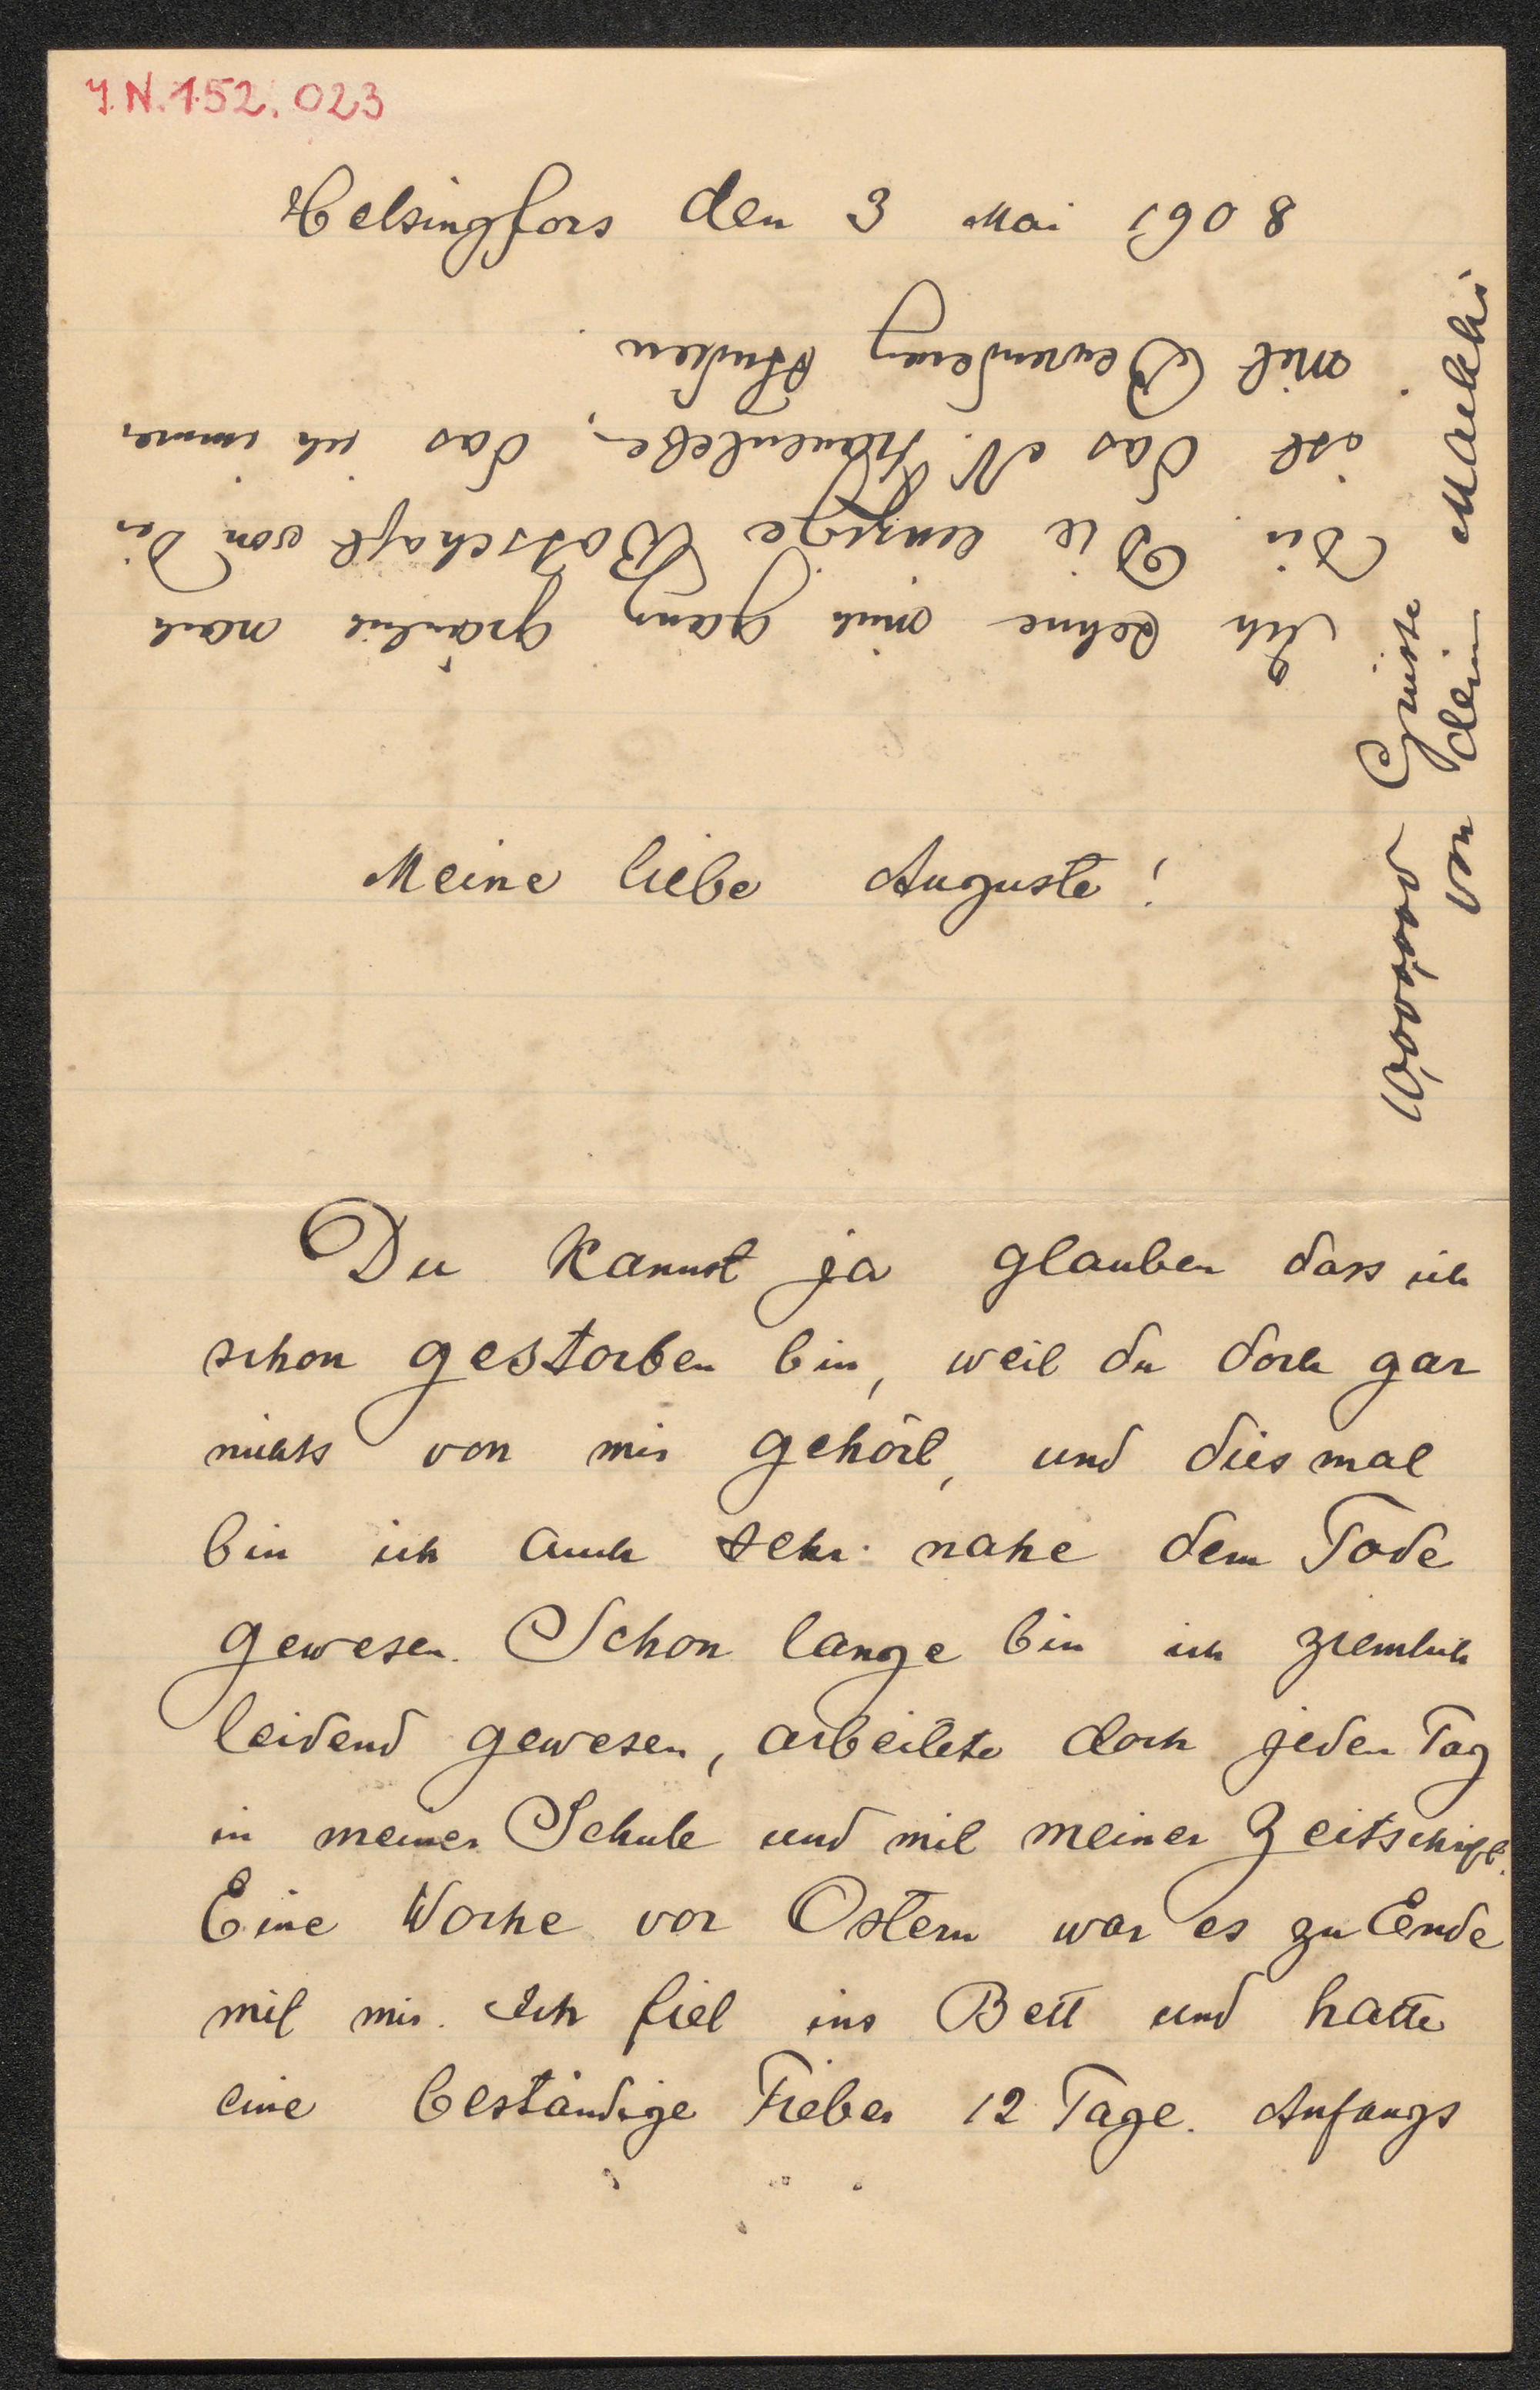 J.N. 152.023
Helsingfors den 3 Mai 1908
Meine liebe Auguste!
Du kannst ja glauben dass ich
schon gestorben bin, weil du doch gar
nichts von mir gehört, und diesmal
bin ich auch sehr nahe dem Tode
gewesen. Schon lange bin ich ziemlich
leidend gewesen, arbeitete doch jeden Tag
in meiner Schule und mit meiner Zeitschrift.
Eine Woche vor Ostern war es zu Ende
mit mir. Ich fiel ins Bett und hatte
eine beständige Fieber 12 Tage. Anfangs
Ich sehne mich ganz gräulich nach
Dir. Die einzige Botschaft von Dir
ist das N. Frauenleben, das ich immer
mit Bewunderung
Grüsse
von deine Maikki